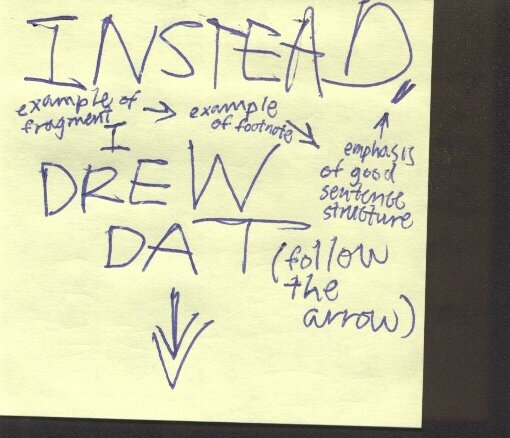 INSTEAD,
example of
fragment
example
of footnote
emphasis
of good
sentence
structure
I
DREW
DAT
(follow
the
arrow)